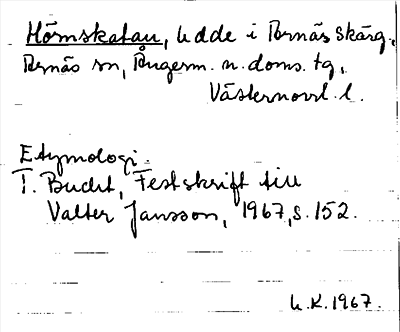 Hömskatan, Udde i Arnäs skärg.,
Arnäs sn, Ångerm. n. doms. tg,
Västernorrl. l.
Etymologi.
T. Bucht, Festskrift till
Valter Jansson, 1967, s. 152.
h.K. 1967.